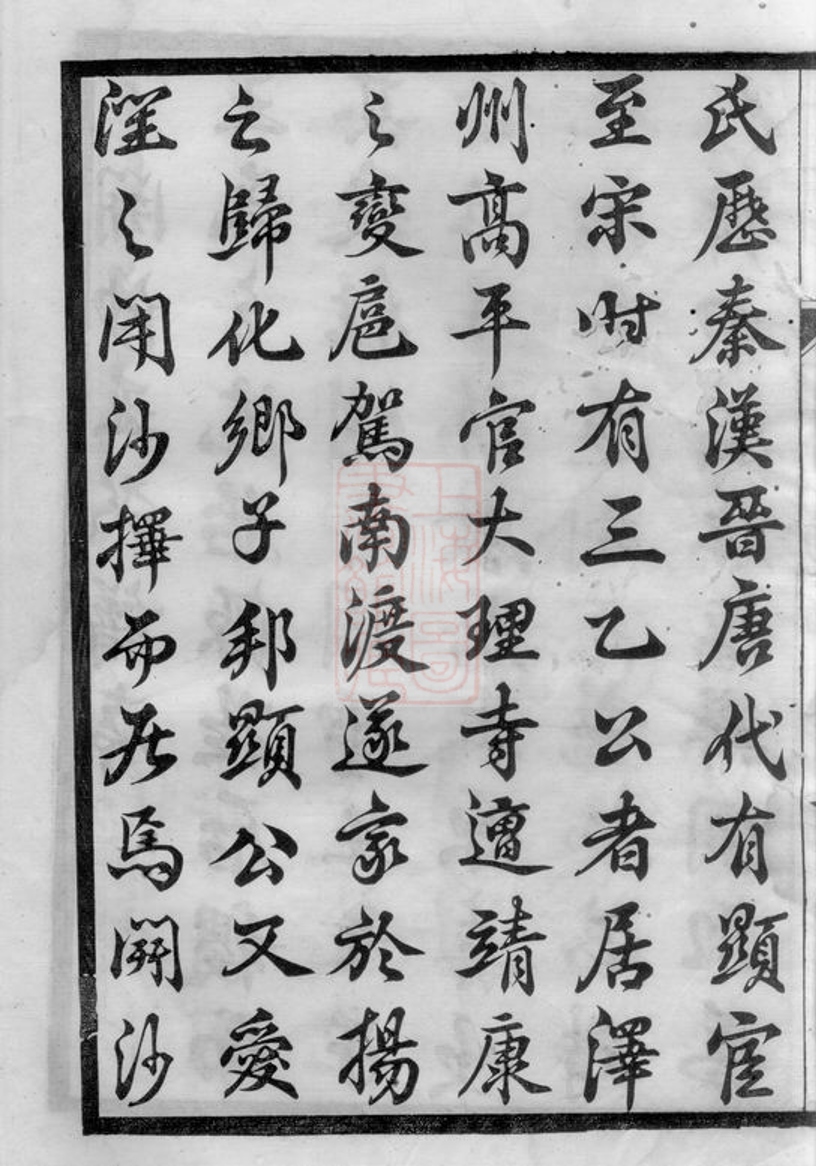 氏歷秦漢晉唐代有顯宦
至宋時有三乙公者居澤
州高平官大理寺遭靖康
之變扈駕南渡遂家於揚
之歸化鄉子邦顯公又愛
洭之開沙擇而居焉開沙
上海圖書館藏